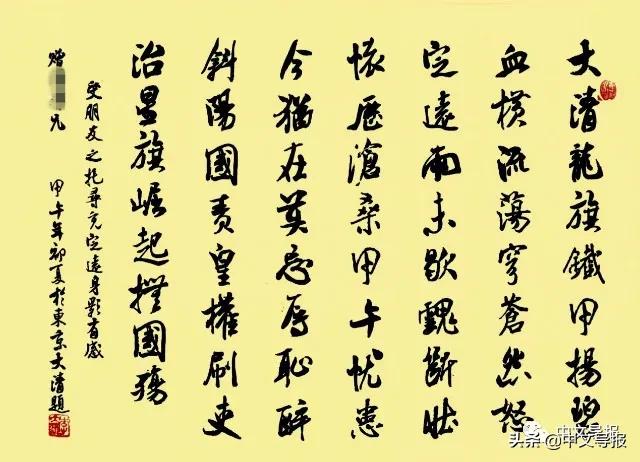 大清龍旗鐵甲揚碧
血横流蕩穹蒼然怒
定遠未歇斷壯
懷歷滄桑甲午忧患
今猶在莫忘辱恥醉
斜陽國責皇權刷吏
治星旗崛起撫國殤
受朋友之托尋究定遠身影有感
贈兄 甲午年初夏於東京大清題
中文导报
头条@中文导报